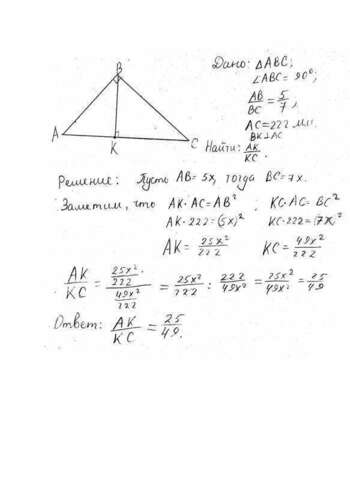 Дано: △ABC;
∠ABC = 90°;
AB/BC = 5/7,
AC = 222 мм.
BK⊥AC
Найти: AK/KC.
B
A
K
C
Решение: Пусть AB = 5x, тогда BC = 7x.
Заметим, что AK·AC = AB²; KC·AC = BC²
AK·222 = (5x)² KC·222 = (7x)²
AK = 25x²/222 KC = 49x²/222
AK/KC = (25x²/222)/(49x²/222) = 25x²/222 : 222/49x² = 25x²/49x² = 25/49
Ответ: AK/KC = 25/49.